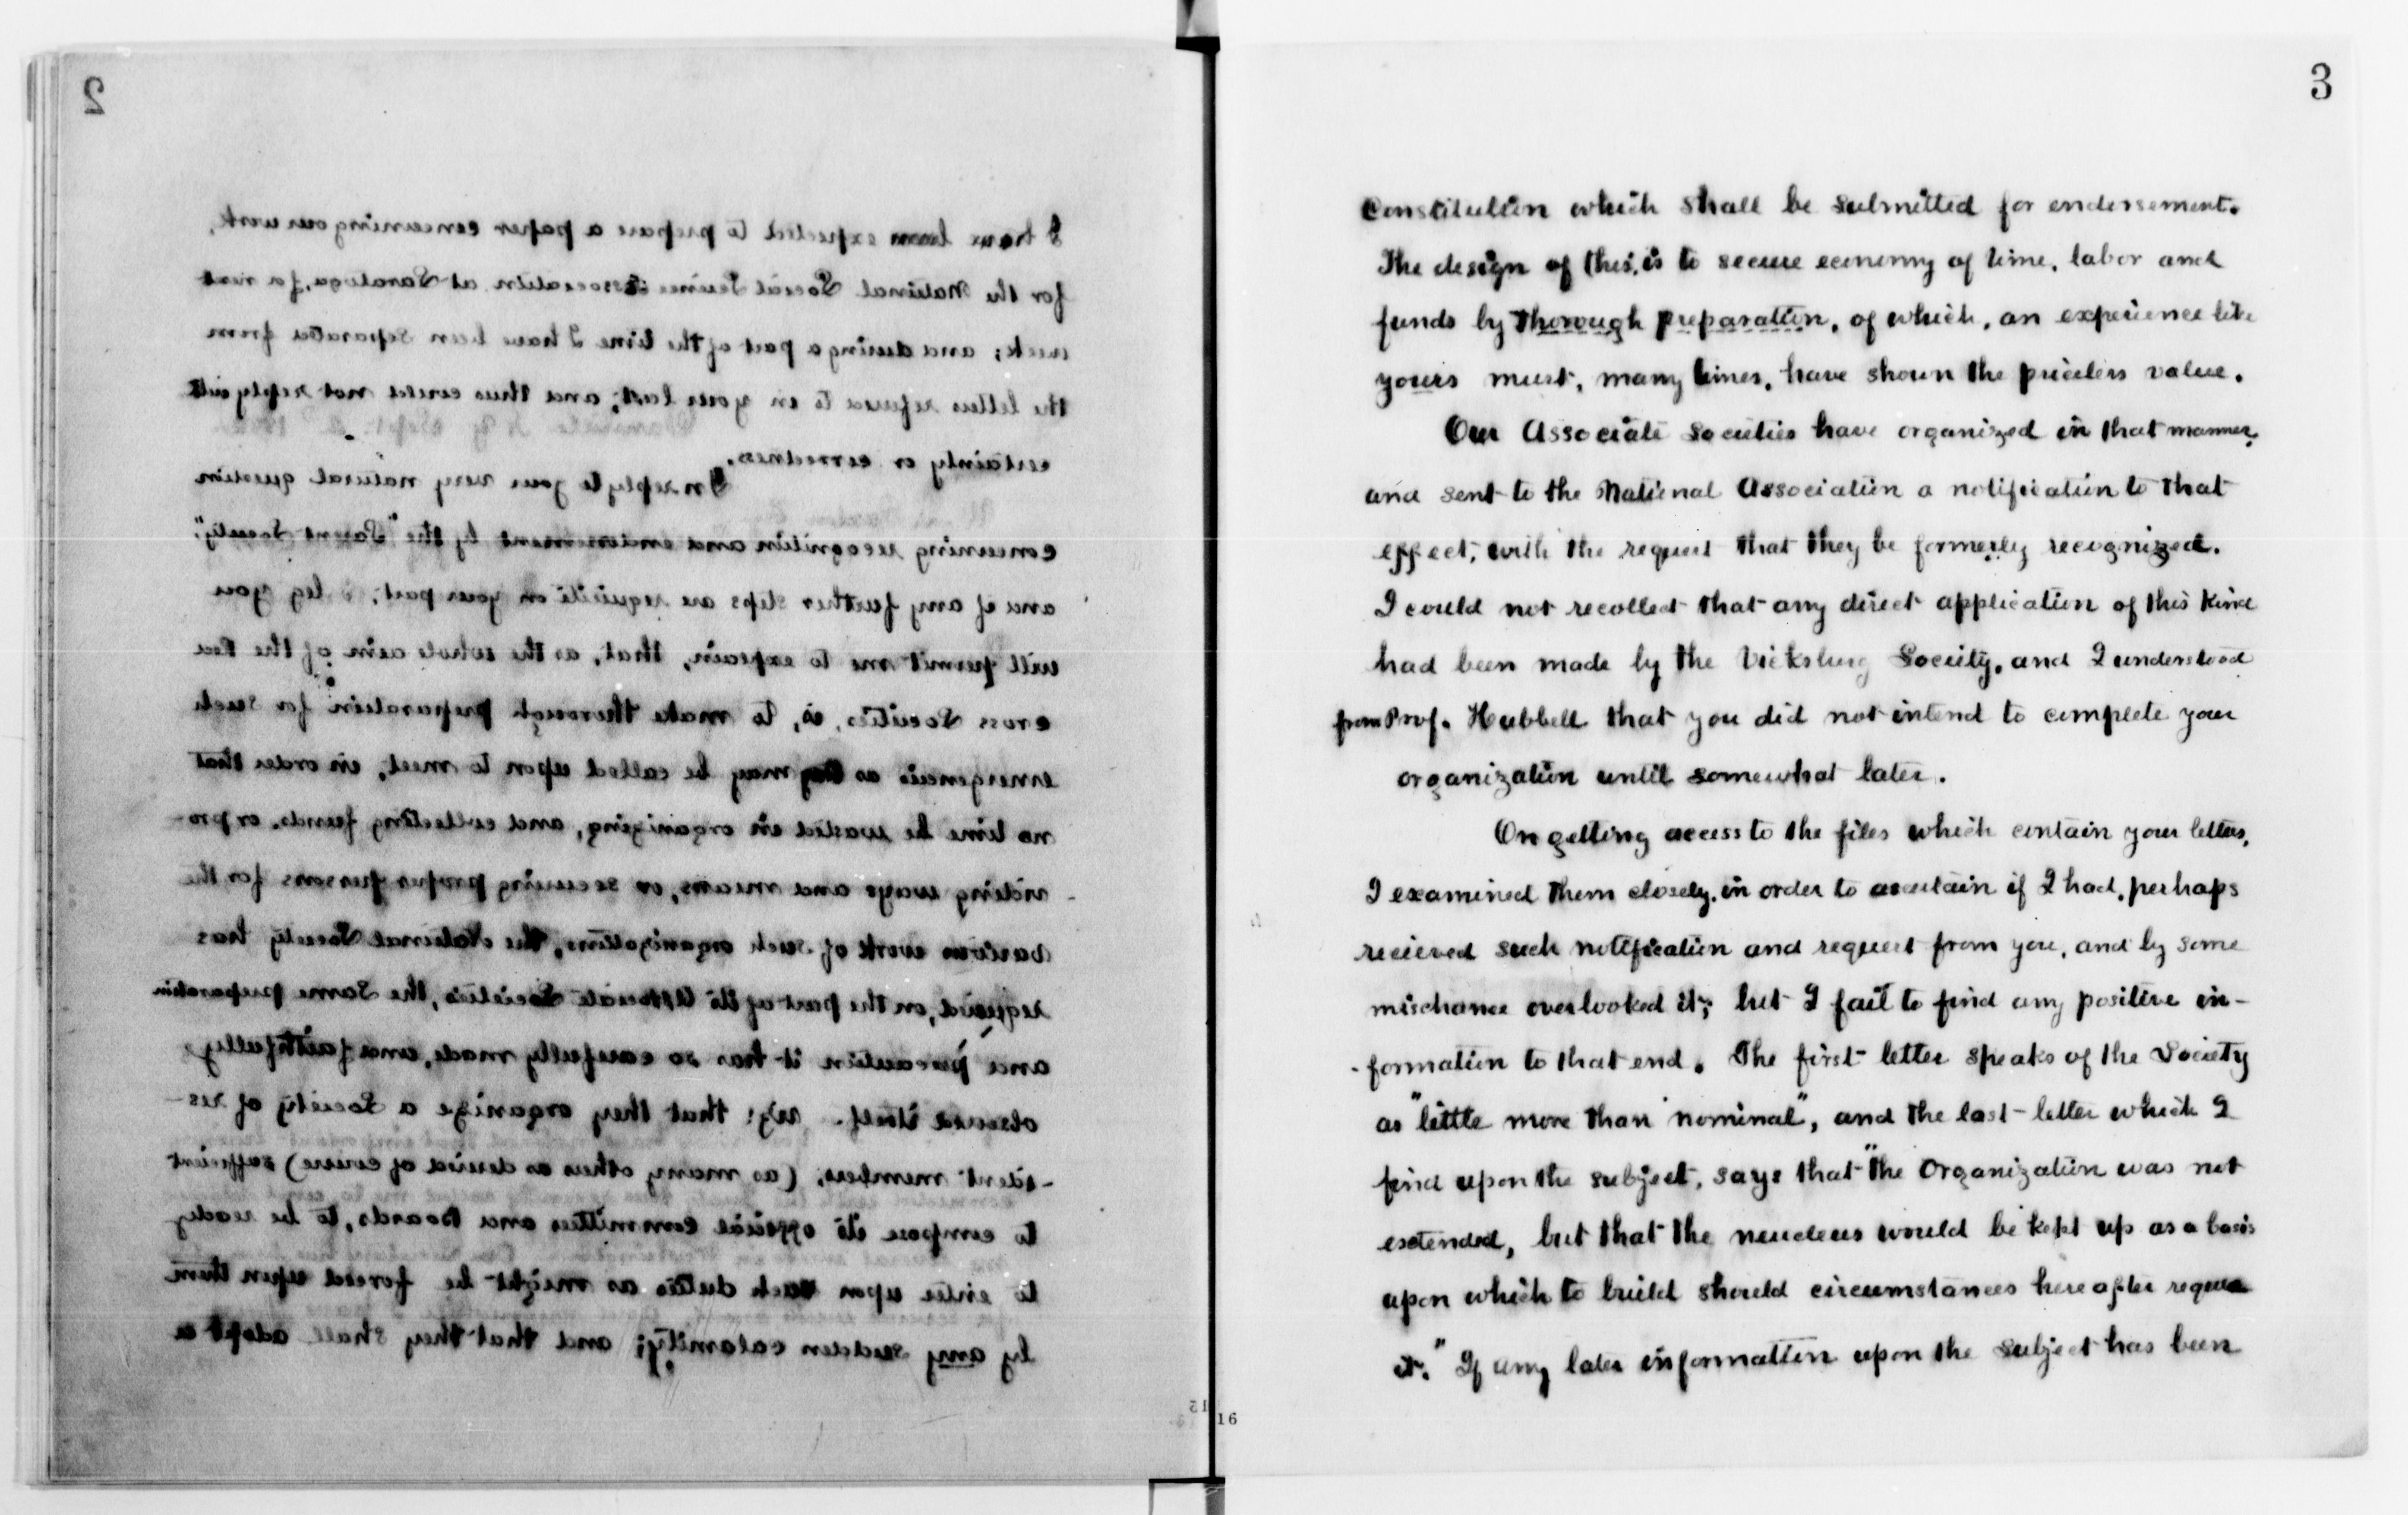 2
I have been expected to prepare a paper concerning our work,
for the National Social Science Association at Saratoga, for next
week; and during a part of the time I have been separated from
the letters refered to in your last; and thus could not reply with
certainty or correctness.
In reply to your very natural question
concerning recognition and endorsement by the "Parent Society",
and if any further steps are requisite on your part; I beg you
will permit me to explain, that, as the whole aim of the Red
Cross Societies, is, to make thorough preparation for such
emergencies as they may be called upon to meet, in order that
no time be wasted in organizing, and collecting funds, or pro-
viding ways and means, or securing proper persons for the
various work of such organizations, the National Society has
required, on the part of its Associate Societies, the same preparation
and precaution it has so carefully made, and faithfully
observed itself. viz: that they organize a Society of res-
-ident members, (as many others as desired of course) sufficient
to compose its official committees and Boards, to be ready
to enter upon such duties as might be forced upon them
by any sudden calamity; and that they shall adopt a
15
3
Constitution which shall be submitted for endorsement.
The design of this, is to secure economy of time, labor and
funds by thorough preparation, of which, an experience like
yours must, many times, have shown the priceless value.
Our Associate Societies have organized in that manner,
and sent to the National Association a notification to that
effect, with the request that they be formerly recognized.
I could not recollect that any direct application of this kind
had been made by the Vicksburg Society, and I understood
from Prof. Hubbell that you did not intend to complete your
organization until somewhat later.
On getting access to the files which contain your letters,
I examined them closely, in order to ascertain if I had, perhaps
recieved such notification and request from you, and by some
mischance overlooked it; but I fail to find any positive in-
-formation to that end. The first letter speaks of the Society
as "little more than nominal", and the last letter which I
find upon the subject, says that "the Organization was not
extended, but that the neucleus would be kept up as a basis
upon which to build should circumstances hereafter require
it." If any later information upon the subject has been
16